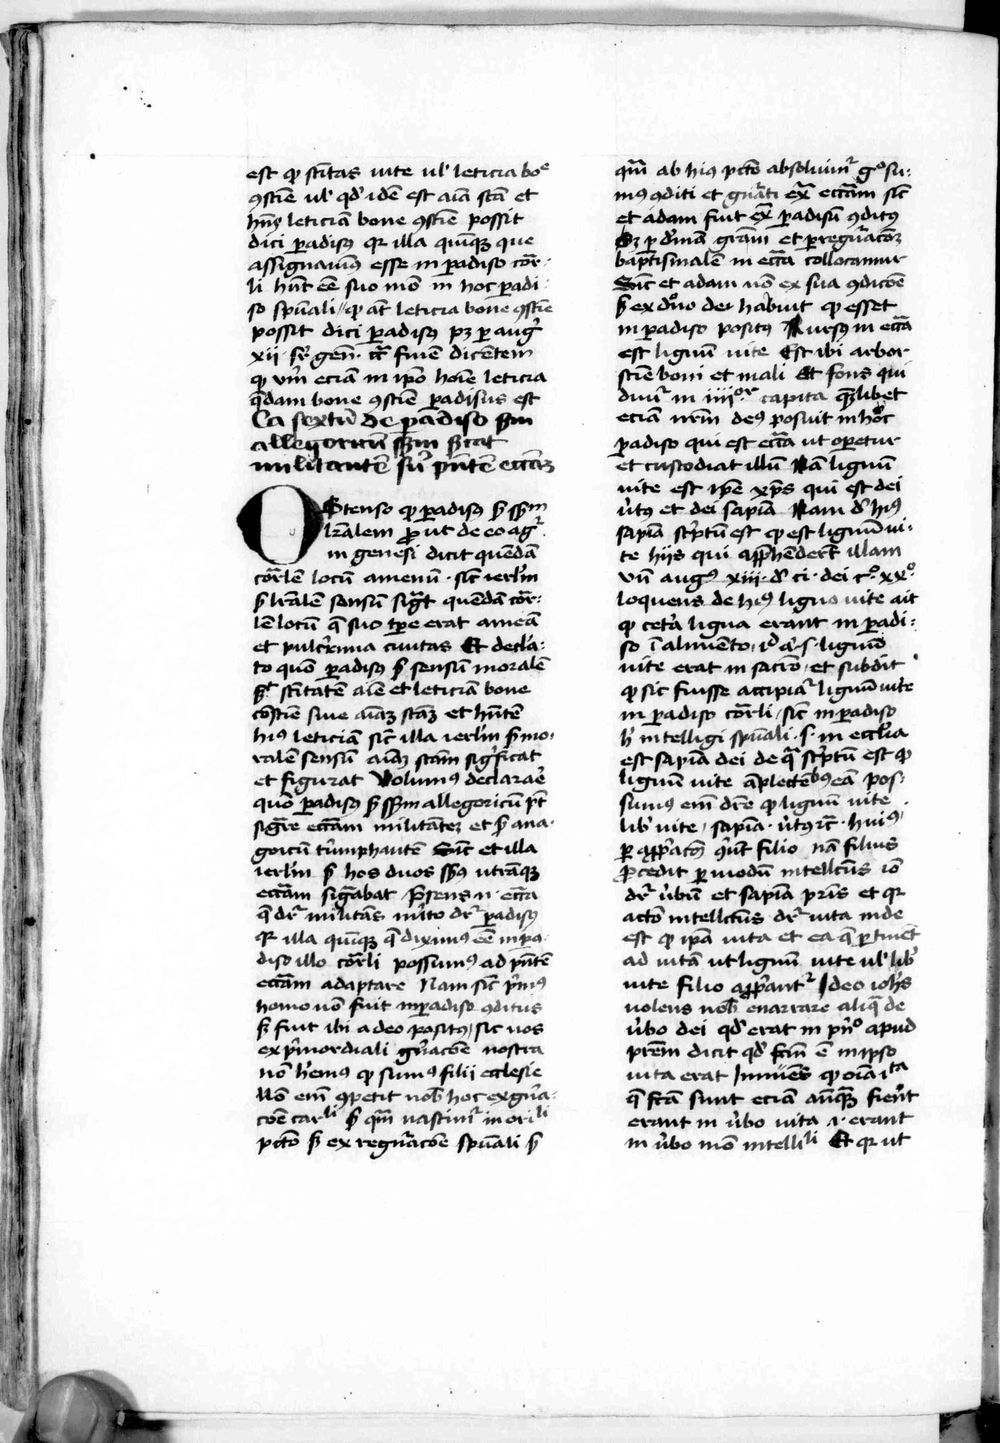 est qꝫ sc̄itas uite ul' leticia boe
ꝯsciē ul' qd' idē est aīa sc̄a et
hn̄s leticiā bone ꝯsciē possit
dici ꝑadisꝰ qr illa quinqꝫ que
assignauimꝰ esse in ꝑadiso cor-
li hn̄t eē suo mō in hoc ꝑadi-
so spūali / qꝫ aūt leticia bone ꝯsciē
possit dici ꝑadisꝰ pꝫ ꝑ augꝰ
xii · sr̄ gen̄ · dicentem
qꝫ eciā in ip̄o hoīe leticia
q̄dam bone ꝯsciē ꝑadisus est
Ca sextū de ꝑadiso ẜm
allegoricū
militantē eccāꝫ
Ostenso qꝫ ꝑadisꝰ ẜ ss̄m
lr̄alem ꝓut de eo agr̄
in genesi dicit quendā
cor̄lē locū amenū · sic̄ ierl'm
ẜ lr̄alē sensū sig̅t quendā cor-
lē locū q̄ suo tꝑe erat amēa
et pulcr̄ima ciuitas Et decla-
to quō ꝑadisꝰ ẜ sensū moralē
sc̄itatē aīe et leticiā bone
cōsciē siue aīaꝫ sc̄aꝫ et hn̄tē
hiꝰ leticiā sic̄ illa ierl'm ẜ mo-
ralē sensū aīaꝫ sc̄am sig̅ficat
et figurat Volumꝰ declarare
quō ꝑadisꝰ ẜ ss̄m allegoricū pt̄
sig̅re eccāꝫ militāteꝫ et ẜ ana-
goicū triumphantē Sic̄ et illa
ierl'm ẜ hos duos ss̄ꝰ utrāqꝫ
eccām sig̅abat Pn̄sens n̄ · eccā
q̄ dr̄ militās mito dr̄ ꝑadisꝰ
qr illa quinqꝫ q̄ diximꝰ eē in ꝑa-
diso illo cor̄li possumꝰ ad pn̄tē
eccām adaptare Nam sic̄ p̄mꝰ
homo nō fuit in ꝑadiso ꝯditus
ẜ fuit ibi a deo positꝰ / sic nos
ex p̄mordiali gn̄acōe nostra
nō h'emꝰ qꝫ sumꝰ filii ecclesie
Nō em̄ ꝯpetit nob' hoc ex gn̄a-
cōe carli ẜ qm̄ nascimr̄ in orili
pctō ẜ ex regn̄acōe spūali ẜ
qm̄ ab hiꝰ pctō absoluimr̄ go su-
mꝰ ꝯditi et gn̄ati ex̄ eccām sic̄
et adam fuit ex̄ ꝑadisū ꝯditꝰ
Sꝫ ꝑ dīnā grām et ꝑ regn̄acōꝫ
bap̄tismalē in eccā collocamur
Sic̄ et adam nō ex sua ꝯdicōe
ẜ ex dōno dei habuit qꝫ esset
in ꝑadiso positꝰ Rursꝰ in eccā
est lignū uite Est ibi arbor
sciē boni et mali Et fons qui
diuīr in iiijor capita qꝫlibet
eciā nr̄m deꝰ posuit in hoc
ꝑadiso qui est eccā ut oꝑetur
et custodiat illū Nā lignū
uite est ip̄e xp̄s qui est dei
ūtꝰ et dei sapīa Nam d' hiꝰ
sapīa sc̄ptū est qꝫ est lignū ui-
te hijs qui app̄henderīt illam
Vn̄ augꝰ xiii · d' ci · dei c° · xx°
loquens de hiꝰ ligno uite ait
qꝫ cet̄a ligna erant in ꝑadi-
so ī alimento / · s · lignū
uite erat in sacr̄o / et subdit
qꝫ sic fuisse accipiar̄ lignū uite
in ꝑadiso cor̄li / sic̄ in ꝑadiso
h' intelligi spūali · s · in ecclīa
est sapīa dei de q̄ sc̄ptū est qꝫ
lignū uite āplectētibꝰ eā pos-
sumꝰ em̄ dr̄e qꝫ lignū uite
lib' uite / sapīa · ūtꝰ · huiꝰ
ꝑ app̄atō ꝯūit filio nā filius
ꝓcedit ꝑ modū intellcūs iō
dr̄ ūbū et sapīa pr̄is et qr
actō intellctus dr̄ uita inde
est qꝫ ip̄a uita et ea q̄ ꝑtinēt
ad uitā ut lignū uite ul' lib'
uite filio app̄antr̄ Ideo ioh's
uolens nob' enarrare aliq̄ de
ūbo dei qd' erat in pn̄° apud
prēm dicit qd' fcm̄ ē in ipso
uita erat Innuēs qꝫ oīa ita
q̄ fc̄a sunt eciā anq̄ꝫ fieūt
erant in ūbo uita ·i· erant
in ūbo mō intellili Et qr ut